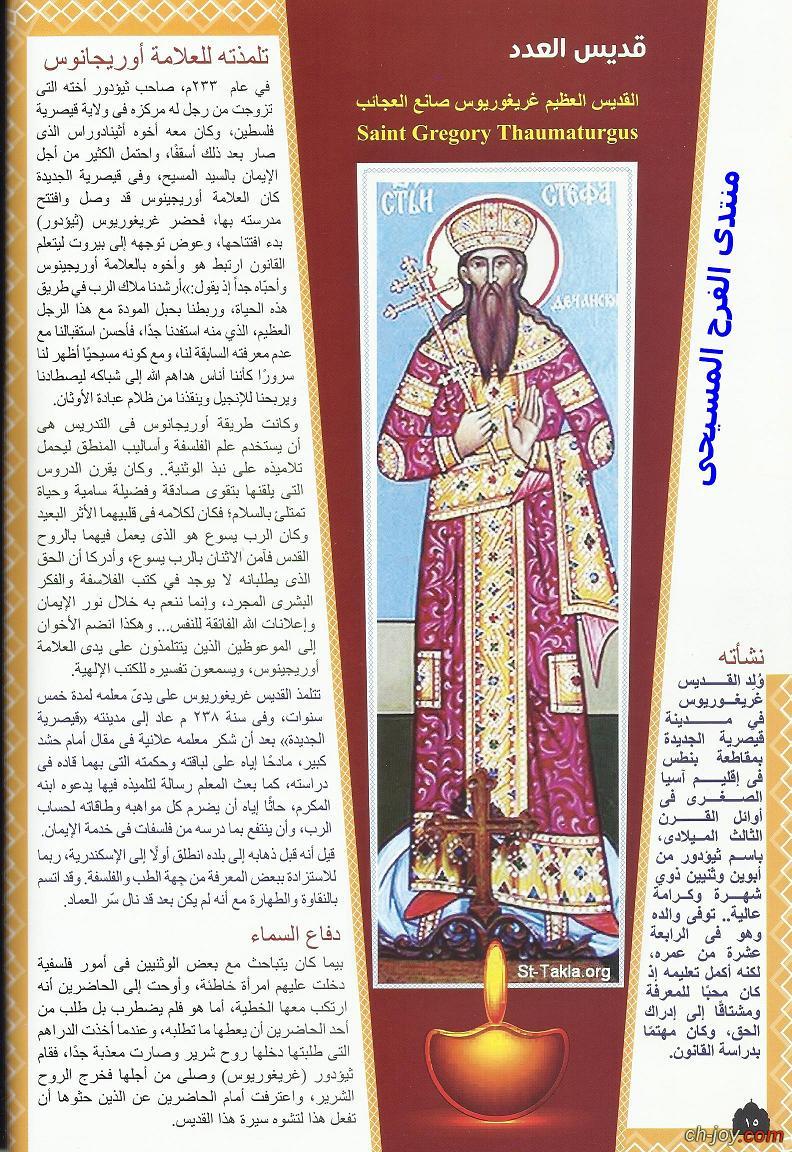 قديس العدد
القديس العظيم غريغوريوس صانع العجائب
Saint Gregory Thaumaturgus
СТЬИ
СТЕФА
ДЕЧАНСКИ
St-Takla.org
منتدى الفرح المسيحى
نشأته
وُلِد القـديس
غريغوريوس
في مدينة
قيصرية الجديدة
بمقاطعة بنطس
فى إقليم آسيا
الصغرى فى
أوائل القرن
الثالث الميلادى،
باسم ثيؤدور من
أبوين وثنيين ذوي
شهرة وكرامة
عالية.. توفى والده
وهو فى الرابعة
عشرة من عمره،
لكنه أكمل تعليمه إذ
كان محبًا للمعرفة
ومشتاقًا إلى إدراك
الحق، وكان مهتمًا
بدراسة القانون.
تلمذته للعلامة أوريجانوس
في عام ٢٣٣م، صاحب ثيؤدور أخته التى
تزوجت من رجل له مركزه فى ولاية قيصرية
فلسطين، وكان معه أخوه أثينادوراس الذى
صار بعد ذلك أسقفًا، واحتمل الكثير من أجل
الإيمان بالسيد المسيح، وفى قيصرية الجديدة
كان العلامة أوريجينوس قد وصل وافتتح
مدرسته بها، فحضر غريغوريوس (ثيؤدور)
بدء افتتاحها، وعوض توجهه إلى بيروت ليتعلم
القانون ارتبط هو وأخوه بالعلامة أوريجينوس
وأحبّاه جداً إذ يقول:»أرشدنا ملاك الرب في طريق
هذه الحياة، وربطنا بحبل المودة مع هذا الرجل
العظيم، الذي منه استفدنا جدًا، فأحسن استقبالنا مع
عدم معرفته السابقة لنا، ومع كونه مسيحيًا أظهر لنا
سرورًا كأننا أناس هداهم الله إلى شباكه ليصطادنا
ويربحنا للإنجيل وينقذنا من ظلام عبادة الأوثان.
وكانت طريقة أوريجانوس فى التدريس هى
أن يستخدم علم الفلسفة وأساليب المنطق ليحمل
تلاميذه على نبذ الوثنية.. وكان يقرن الدروس
التى يلقنها بتقوى صادقة وفضيلة سامية وحياة
تمتلئ بالسلام؛ فكان لكلامه فى قلبيهما الأثر البعيد
وكان الرب يسوع هو الذى يعمل فيهما بالروح
القدس فآمن الاثنان بالرب يسوع، وأدركا أن الحق
الذى يطلبانه لا يوجد في كتب الفلاسفة والفكر
البشرى المجرد، وإنما ننعم به خلال نور الإيمان
وإعلانات الله الفائقة للنفس... وهكذا انضم الأخوان
إلى الموعوظين الذين يتتلمذون على يدى العلامة
أوريجينوس، ويسمعون تفسيره للكتب الإلهية.
تتلمذ القديس غريغوريوس على يدىّ معلمه لمدة خمس
سنوات، وفى سنة ٢٣٨ م عاد إلى مدينته «قيصرية
الجديدة» بعد أن شكر معلمه علانية في مقال أمام حشد
كبير، مادحًا إياه على لباقته وحكمته التى بهما قاده فى
دراسته، كما بعث المعلم رسالة لتلميذه فيها يدعوه ابنه
المكرم، حاثًا إياه أن يضرم كل مواهبه وطاقاته لحساب
الرب، وأن ينتفع بما درسه من فلسفات فى خدمة الإيمان.
قيل أنه قبل ذهابه إلى بلده انطلق أولًا إلى الإسكندرية، ربما
للاستزادة ببعض المعرفة من جهة الطب والفلسفة. وقد اتسم
بالنقاوة والطهارة مع أنه لم يكن بعد قد نال سّر العماد.
دفاع السماء
بيما كان يتباحث مع بعض الوثنيين فى أمور فلسفية
دخلت عليهم امرأة خاطئة، وأوحت إلى الحاضرين أنه
ارتكب معها الخطية، أما هو فلم يضطرب بل طلب من
أحد الحاضرين أن يعطها ما تطلبه، وعندما أخذت الدراهم
التى طلبتها دخلها روح شرير وصارت معذبة جدًا، فقام
ثيؤدور (غريغوريوس) وصلى من أجلها فخرج الروح
الشرير، واعترفت أمام الحاضرين عن الذين حثوها أن
تفعل هذا لتشوه سيرة هذا القديس.
١٥
ch-joy.com